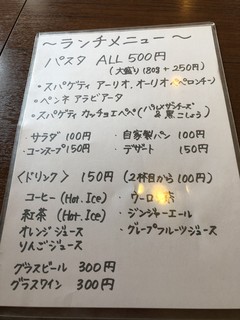 ～ランチメニュー～
パスタ ALL 500円
(大盛り180g +250円)
・スパゲティ アーリオ、オーリオ、ペペロンチーノ
・ペンネ アラビアータ
・スパゲティ カッチョエペペ (パルメザンチーズ & 黒こしょう)
・サラダ 100円 ・自家製パン 100円
・コーンスープ 150円 ・デザート 150円
〈ドリンク〉 150円 (2杯目から100円)
コーヒー (Hot. Ice) ・ウーロン茶
紅茶 (Hot. Ice) ・ジンジャーエール
オレンジジュース ・グレープフルーツジュース
りんごジュース
グラスビール 300円
グラスワイン 300円